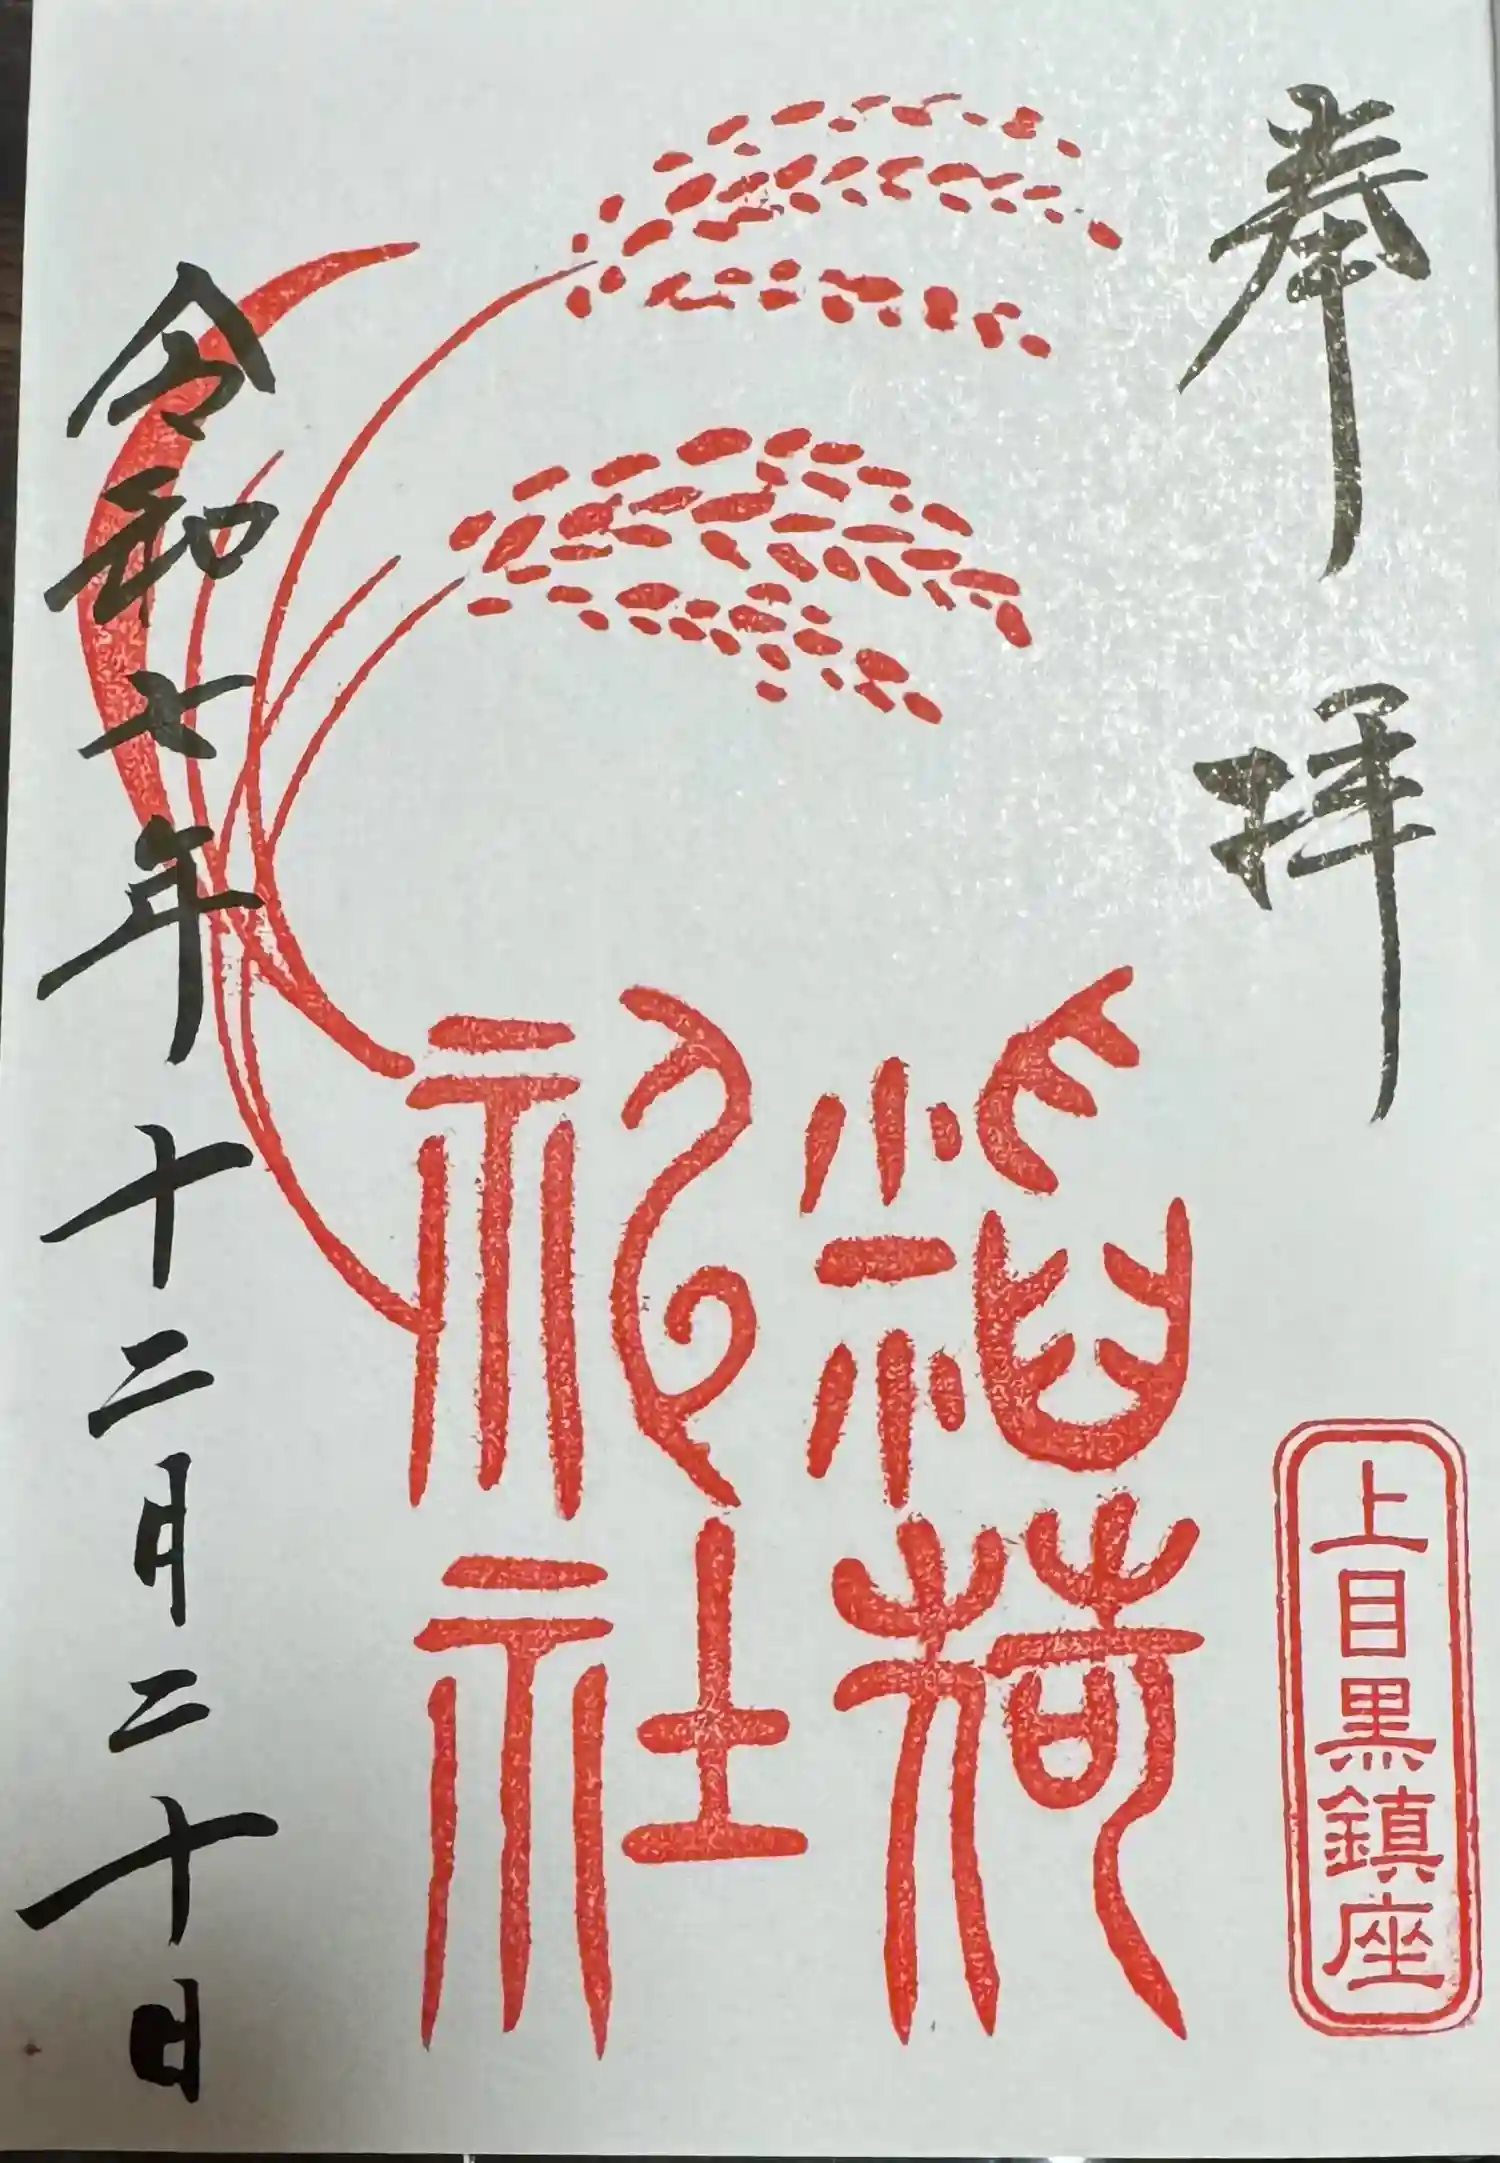 奉拝
上目黒鎮座
稲荷
神社
令和七年十二月二十日